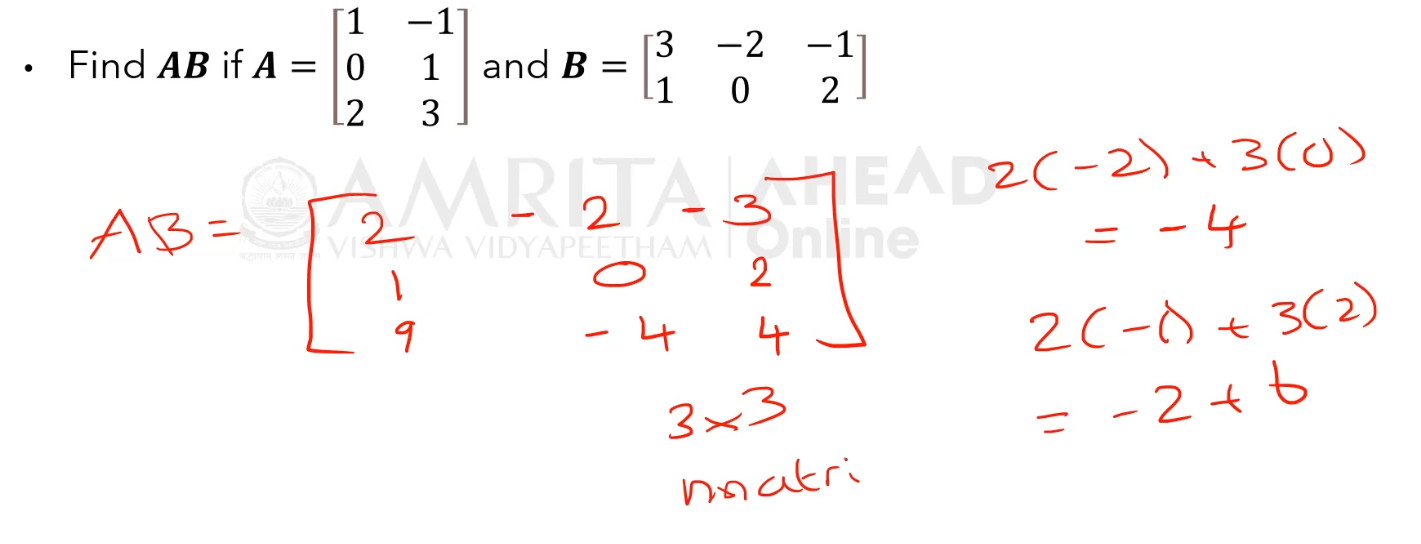 • Find AB if A = [1 −1; 0 1; 2 3] and B = [3 −2 −1; 1 0 2]
AMRITA AHEAD
VISHWA VIDYAPEETHAM Online
AB = [2 -2 -3
1 0 2
9 -4 4]
3×3
matri
2(-2) + 3(0)
= -4
2(-1) + 3(2)
= -2 + 6